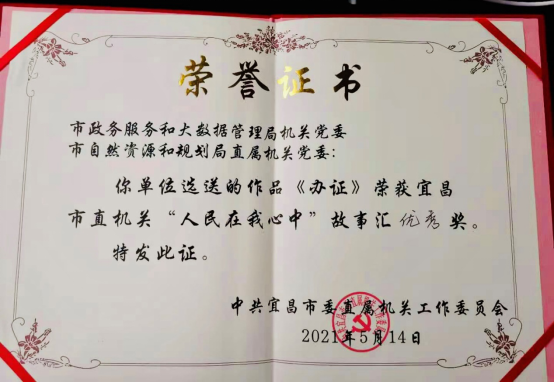 荣誉证书
市政务服务和大数据管理局机关党委
市自然资源和规划局直属机关党委：
你单位选送的作品《办证》荣获宜昌
市直机关“人民在我心中”故事汇优秀奖。
特发此证。
中共宜昌市委直属机关工作委员会
2021年5月14日